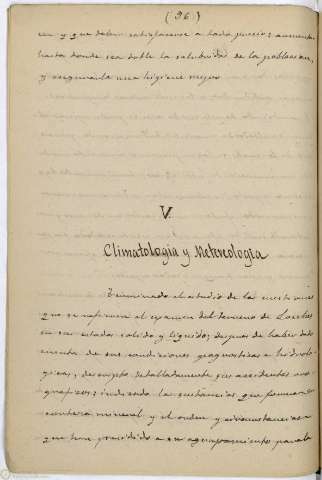 (96)
en y que deben satisfacerse a todo precio; aumentar
hasta donde sea doble la salubridad de la poblacion,
y asegurarla una higiene mejor
V.
Climatologia y Metereologia
Terminado el estudio de las cuestiones
que se refieren al examen del terreno de
en sus estados solido y liquido; despues de haber dado
cuenta de sus condiciones geognosticas e hidrolo-
gicas; descripto detalladamente sus accidentes oro-
graficos; indicando las sustancias que forman su
mineral, y el orden y circunstancias
que han presidido a su agrupamiento para la